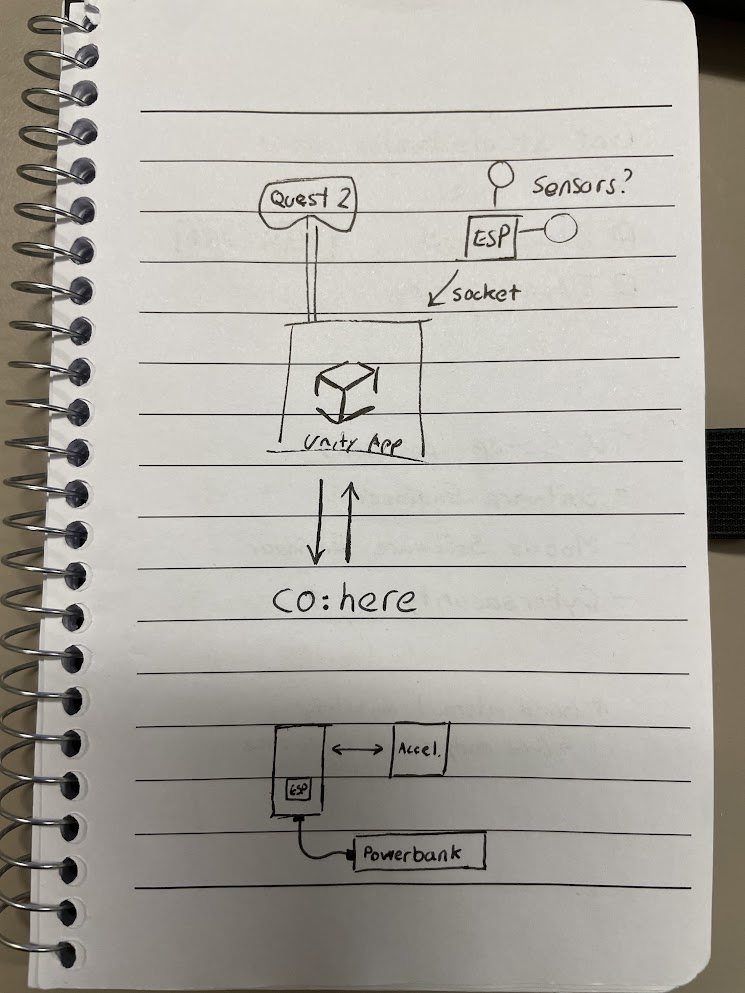 Quest 2
sensors?
ESP
socket
Unity App
co:here
Accel.
ESP
Powerbank